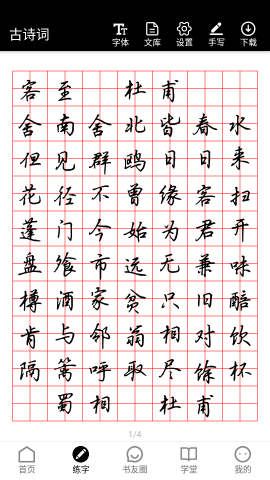 古诗词
字体 文库 设置 手写 下载
客至 杜甫
舍南舍北皆春水
但见群鸥日日来
花径不曾缘客扫
蓬门今始为君开
盘飧市远无兼味
樽酒家贫只旧醅
肯与邻翁相对饮
隔篱呼取尽馀杯
蜀相 杜甫
1/4
首页 练字 书友圈 学堂 我的